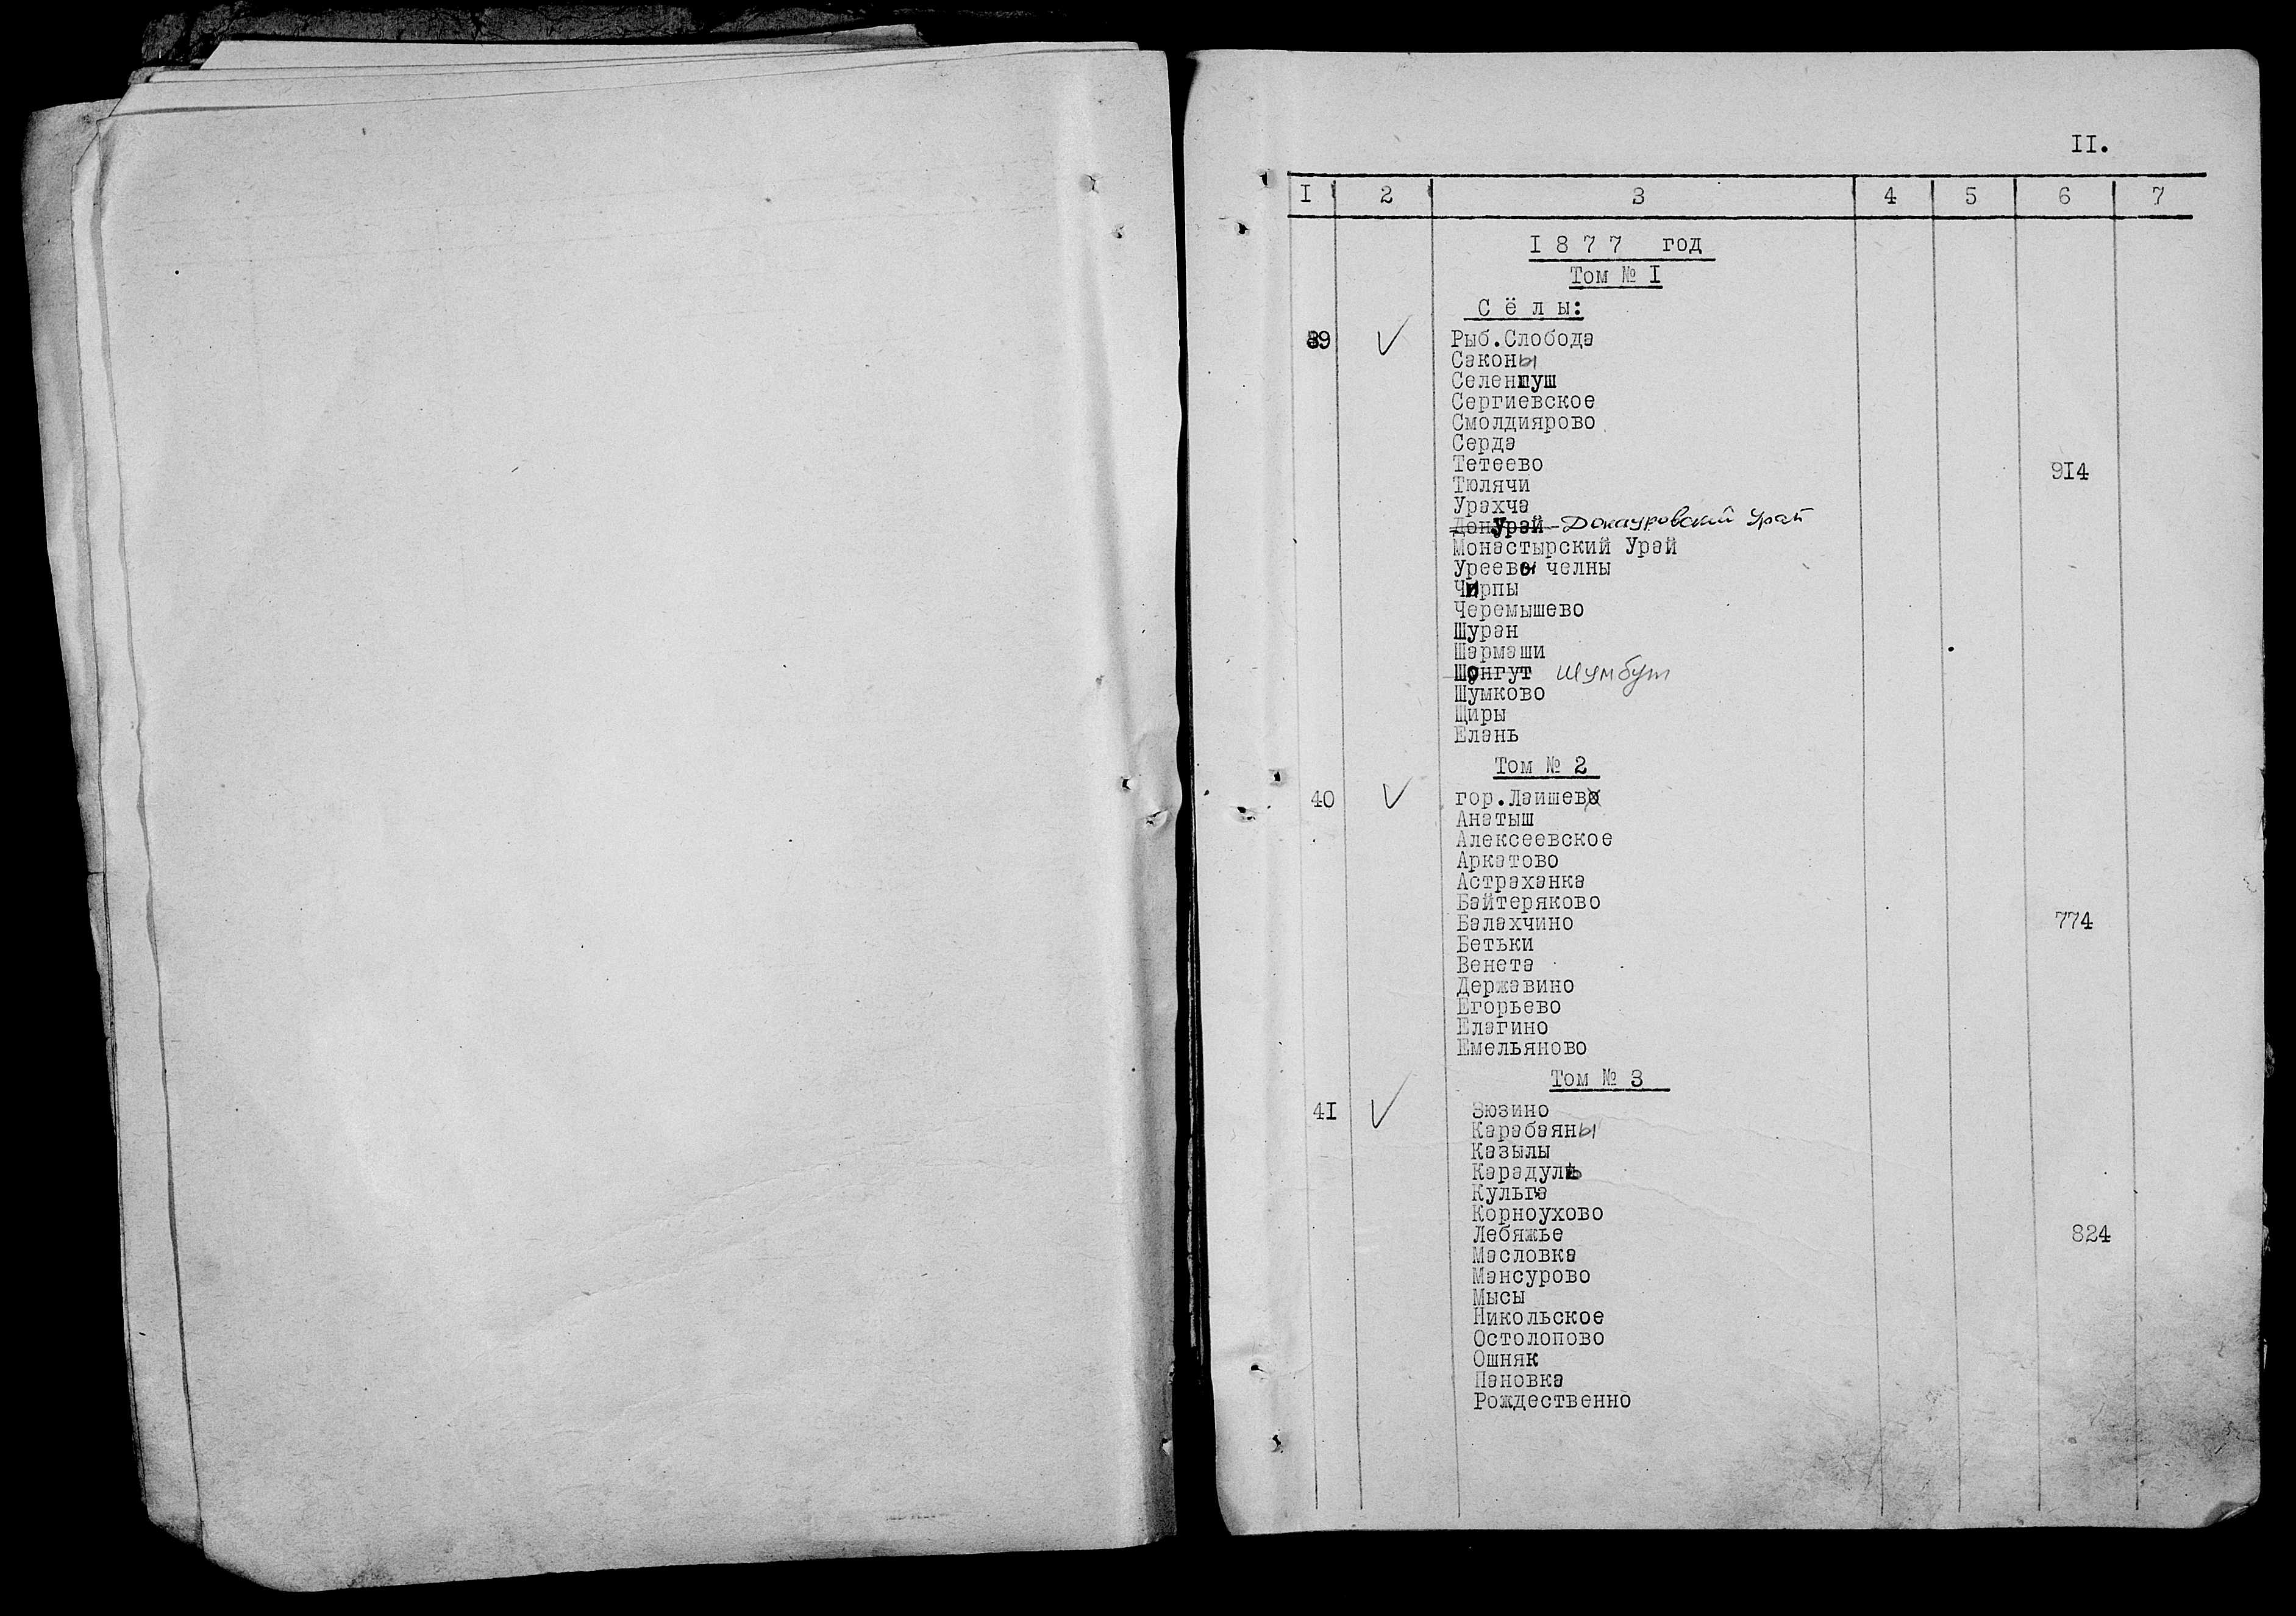 II.
I 2 3 4 5 6 7
I 8 7 7 год
Том № I
С ё л ы:
39 ✓ Рыб.Слобода
Саконы
Селенгуш
Сергиевское
Смолдиярово
Серда
Тетеево
914
Тюлячи
Урахча
Донурай - Донауровский Урай
Монастырский Урай
Уреевы челны
Чирпы
Черемышево
Шуран
Шармаши
Шонгут Шумбут
Шумково
Щиры
Елань
Том № 2
40 ✓ гор.Лаишево
Анатыш
Алексеевское
Аркатово
Астраханка
Байтеряково
Балахчино 774
Бетьки
Венета
Державино
Егорьево
Елагино
Емельяново
Том № 3
41 ✓ Зюзино
Карабаяны
Казылы
Карадуль
Кульга
Корноухово
Лебяжье 824
Масловка
Мансурово
Мысы
Никольское
Остолопово
Ошняк
Пановка
Рождественно